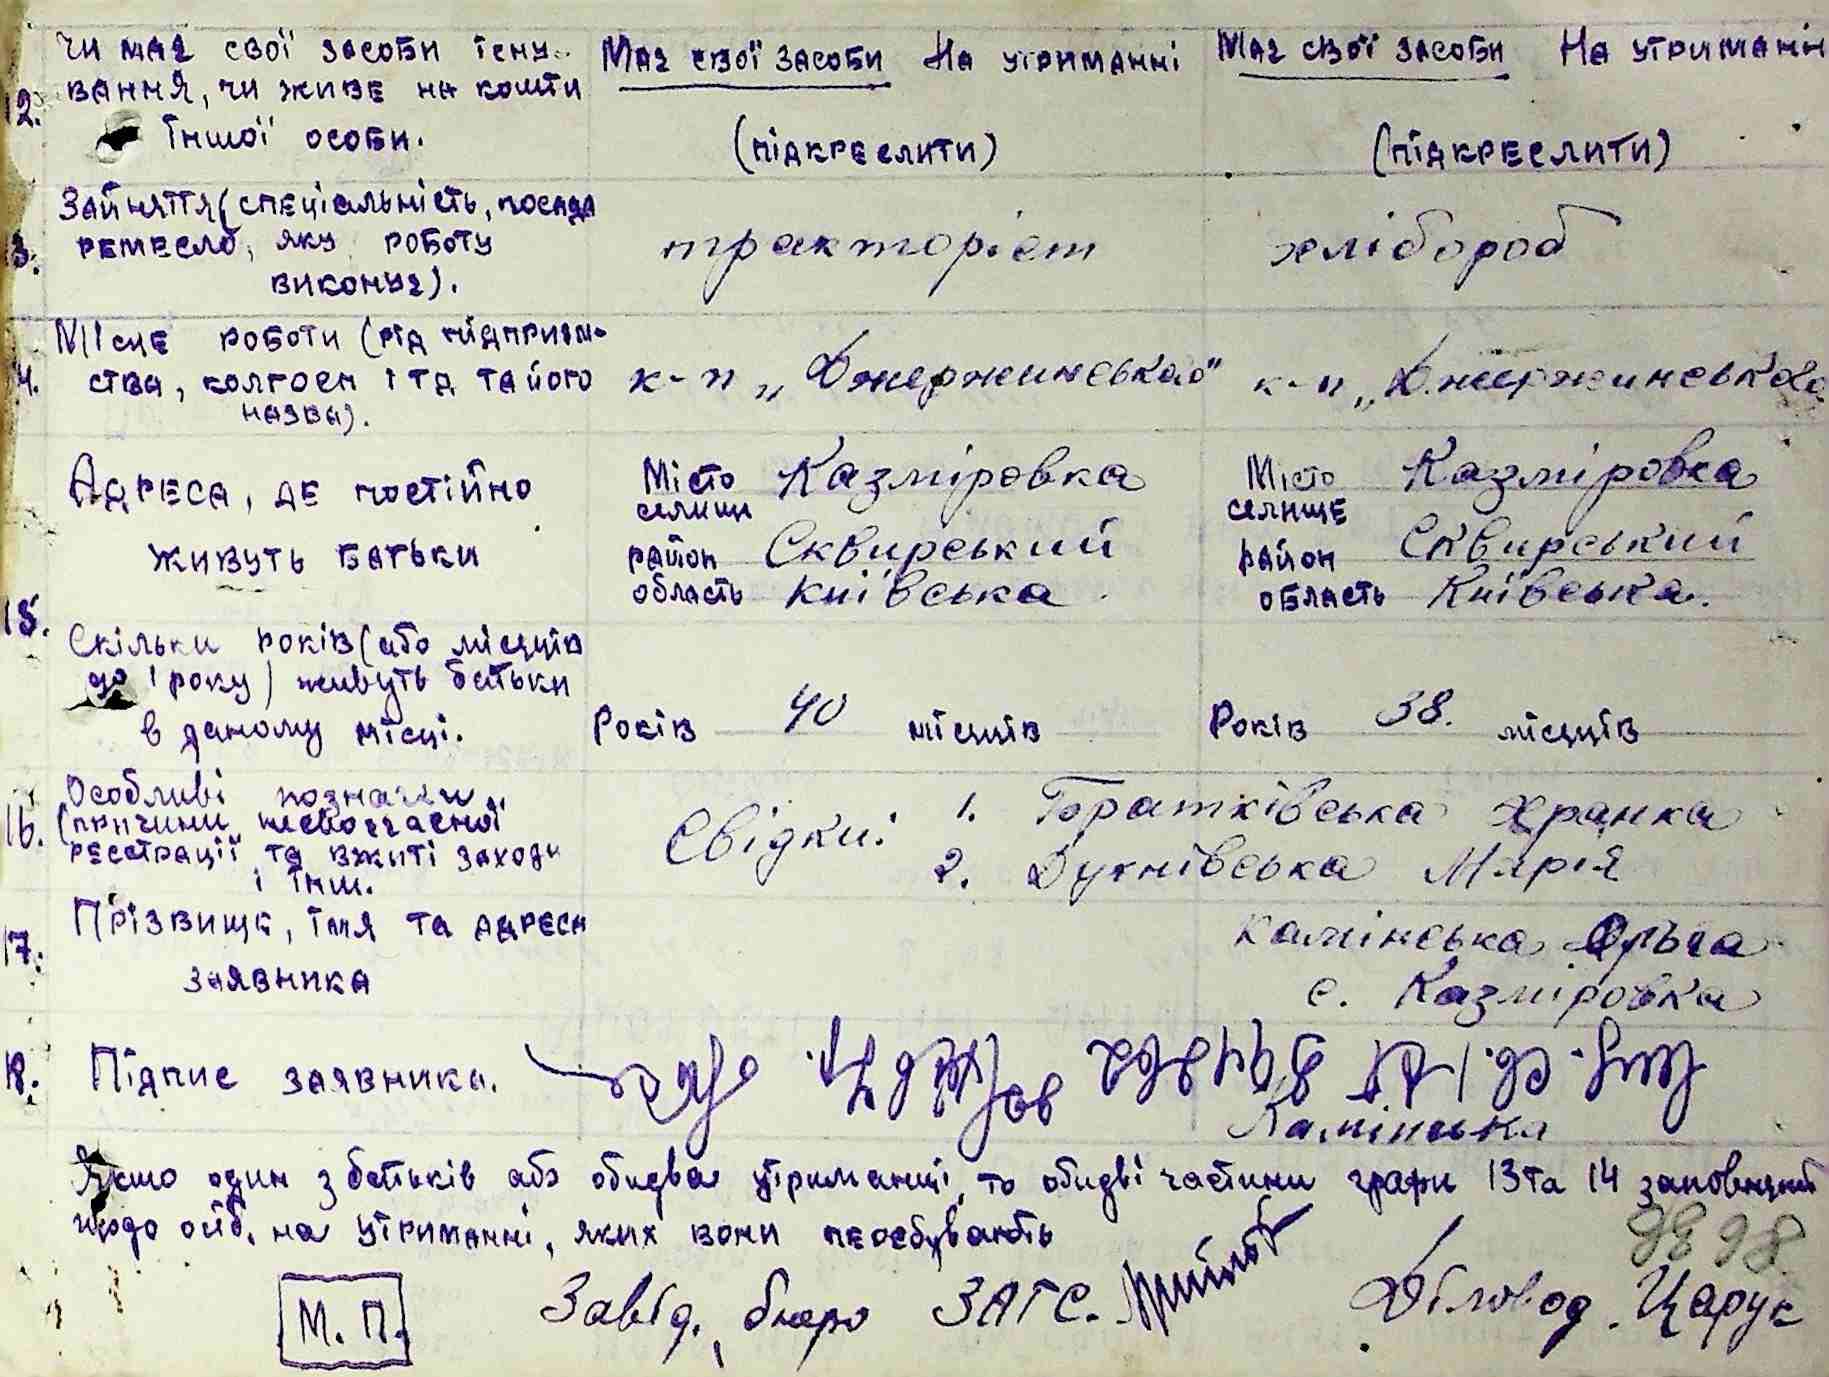 12. Чи має свої засоби існу-
вання, чи живе на кошти
іншої особи.
Має свої засоби На утриманні
(підкреслити)
Має свої засоби На утриманні
(підкреслити)
13. Зайняття (спеціальність, посада
ремесло, яку роботу
виконує).
тракторіст
хлібороб
14. Місце роботи (рід підприєм-
ства, колгосп і тд та його
назва).
к-п „Джержинського"
к-п „Джержинського
15. Адреса, де постійно
живуть батьки
Місто Казміровка
селище
район Сквирський
область Київська.
Місто Казміровка
селище
район Сквирський
область Київська.
Скільки років (або місяців
до 1 року) живуть батьки
в даному місці.
Років 40 місяців
Років 38. місяців
16. Особливі позначки
(причини несвоєчасної
реєстрації та вжиті заходи
і інш.
Свідки: 1. Горатківська Хранка
2. Духнівська Марія
17. Прізвище, імя та адреса
заявника
Камінська Ольга
с. Казміровка
18. Підпис заявника.
Камінська
Якщо один з батьків або обидва утриманці, то обидві частини графи 13 та 14 заповнюють
щодо осіб, на утриманні, яких вони
9898
М. П.
Завід. бюро ЗАГС.
Діловод. Царук